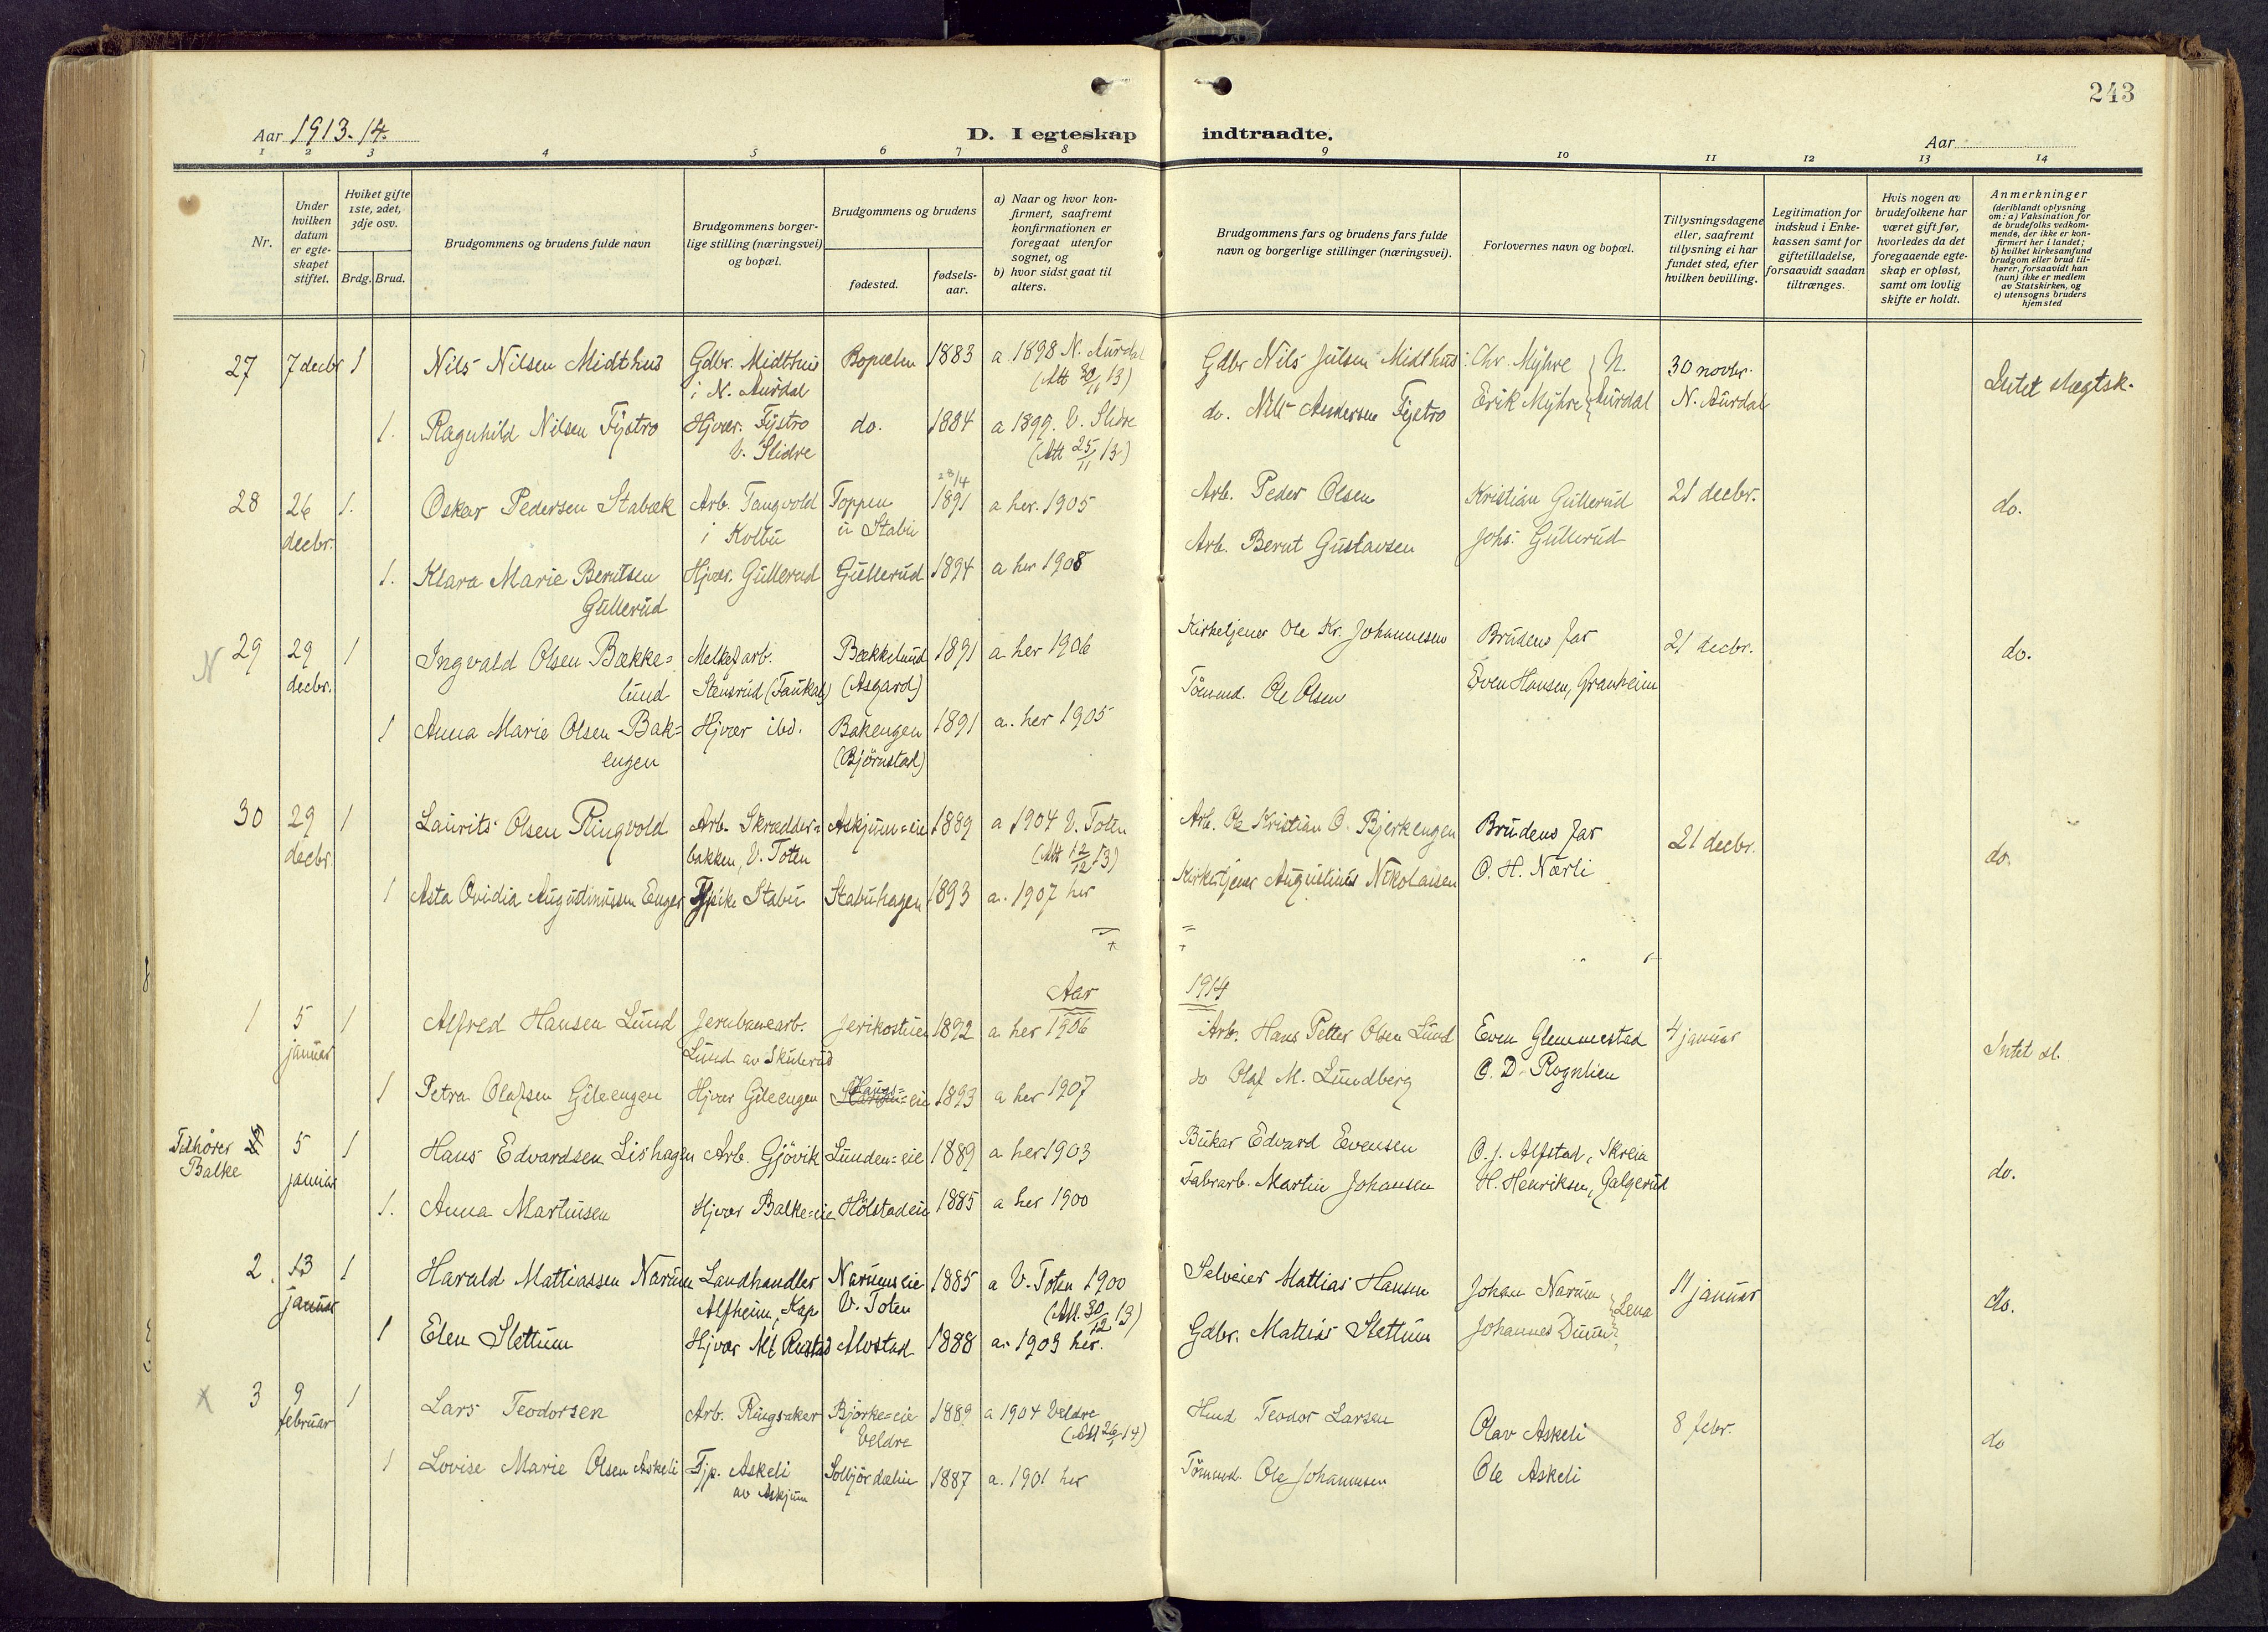 243
Aar 1913-14.
D. I egteskap indtraadte.
Aar
1 2 3 4 5 6 7 8 9 10 11 12 13 14
Nr.
Under hvilken datum er egteskapet stiftet.
Hvilket gifte 1ste, 2det, 3dje osv.
Brdg. Brud.
Brudgommens og brudens fulde navn
Brudgommens borgerlige stilling (næringsvei) og bopæl.
Brudgommens og brudens
fødested.
fødselsaar.
a) Naar og hvor konfirmert, saafremt konfirmationen er foregaat utenfor sognet, og
b) hvor sidst gaat til alters.
Brudgommens fars og brudens fars fulde navn og borgerlige stillinger (næringsvei).
Forlovernes navn og bopæl.
Tillysningsdagene eller, saafremt tillysning ei har fundet sted, efter hvilken bevilling.
Legitimation for indskud i Enkekassen samt for giftetilladelse, forsaavidt saadan tiltrænges.
Hvis nogen av brudefolkene har været gift før, hvorledes da det foregaaende egteskap er opløst, samt om lovlig skifte er holdt.
Anmerkninger
(deriblandt oplysning om: a) Vaksination for de brudefolks vedkommende, der ikke er konfirmert her i landet; b) hvilket kirkesamfund brudgom eller brud tilhører, forsaavidt han (hun) ikke er medlem av Statskirken, og c) utensogns bruders hjemsted
27 7 decbr 1 Nils Nilsen Midthus Gdbr. Midthus Bopælen 1883 a. 1898 N. Aurdal Gdbr Nils Julsen Midthus Chr. Myhre } N. 30 novbr. Intet slegtsk.
i N. Aurdal (Att 30/11 13) Erik Myhre } Aurdal N. Aurdal
1. Ragnhild Nilsen Fystro Hjvær. Fystro do. 1884 a 1899. V. Slidre do. Nils Andersen Fystro
V. Slidre (Att 25/11 13)
28/4
28 26 1. Oskar Pedersen Stabæk Arb. Tangvold Toppen 1891 a her. 1905 Arb. Peder Olsen Kristian Gullerud 21 decbr. do.
decbr. i Kolbu u Stabu Arb. Bernt Gustavsen Johs. Gullerud
1. Klara Marie Berntsen Hjvær. Gullerud Gullerud 1894 a her 1908
Gullerud
N 29 29 1 Ingvald Olsen Bække= Melkefarb. Bækkelund 1891 a her 1906 Kirketjener Ole Kr. Johannesen Brudens far 21 decbr. do.
decbr. lund Stensrud (Faukal) (Asgard) Tömmd. Ole Olsen Even Hansen, Granheim
1 Anna Marie Olsen Bak= Hjvær ibd. Bakengen 1891 a. her 1905
engen (Björnstad)
30 29 1 Laurits Olsen Ringvold Arb. Skrædder= Askjum=eie 1889 a 1904 V. Toten Arb. Ole Kristian O. Bjerkengen Brudens far 21 decbr. do.
decbr. bakken, V. Toten (Att 12/12 13) O. H. Nærli
1 Asta Ovidia Augustinussen Enger Fjpike Stabu Stabuhagen 1893 a. 1907 her Kirketjener Augustinus Nikolaisen
Aar 1914
1 5 1 Alfred Hansen Lund Jernbanearb. Jerikostuen 1892 a her 1906 Arb. Hans Petter Olsen Lund Even Glemmestad 4 januar Intet sl.
januar Lund av Skulerud do Olaf M. Lundberg O. D. Rognlien
1 Petra Olafsen Gileengen Hjvær Gileengen Haugs=eie 1893 a her 1907
Tilhører 5 1 Hans Edvardsen Lishagen Arb. Gjövik Lunden=eie 1889 a her 1903 Bøkar Edvard Evensen O. J. Alfstad, Skreia do.
Balke januar Fabrarb. Martin Johansen H. Henriksen, Galgerud
1. Anna Martinsen Hjvær Balke=eie Hölstadeie 1885 a her 1900
2. 13 1 Harald Mattiassen Narum Landhandler Narumseie 1885 a V. Toten 1900 Selveier Mattias Hansen Johan Narum } Lena 11 januar do.
januar Alfheim, Kap V. Toten (Att. 30/12 13)
1 Elen Slettum Hjvær Alf Rustad Alvstad 1888 a. 1903 her. Gdbr. Mattias Slettum Johannes
x 3 9 1 Lars Teodorsen Arb. Ringsaker Bjørke=eie 1889 a 1904 Veldre Hmd Teodor Larsen Olav Askeli 8 febr. do
februar Veldre (Att 26/1 14)
1 Lovise Marie Olsen Askeli Fjp. Askeli 1887 a. 1901 her Tömmd. Ole Johannesen Ole Askeli
av Askjum